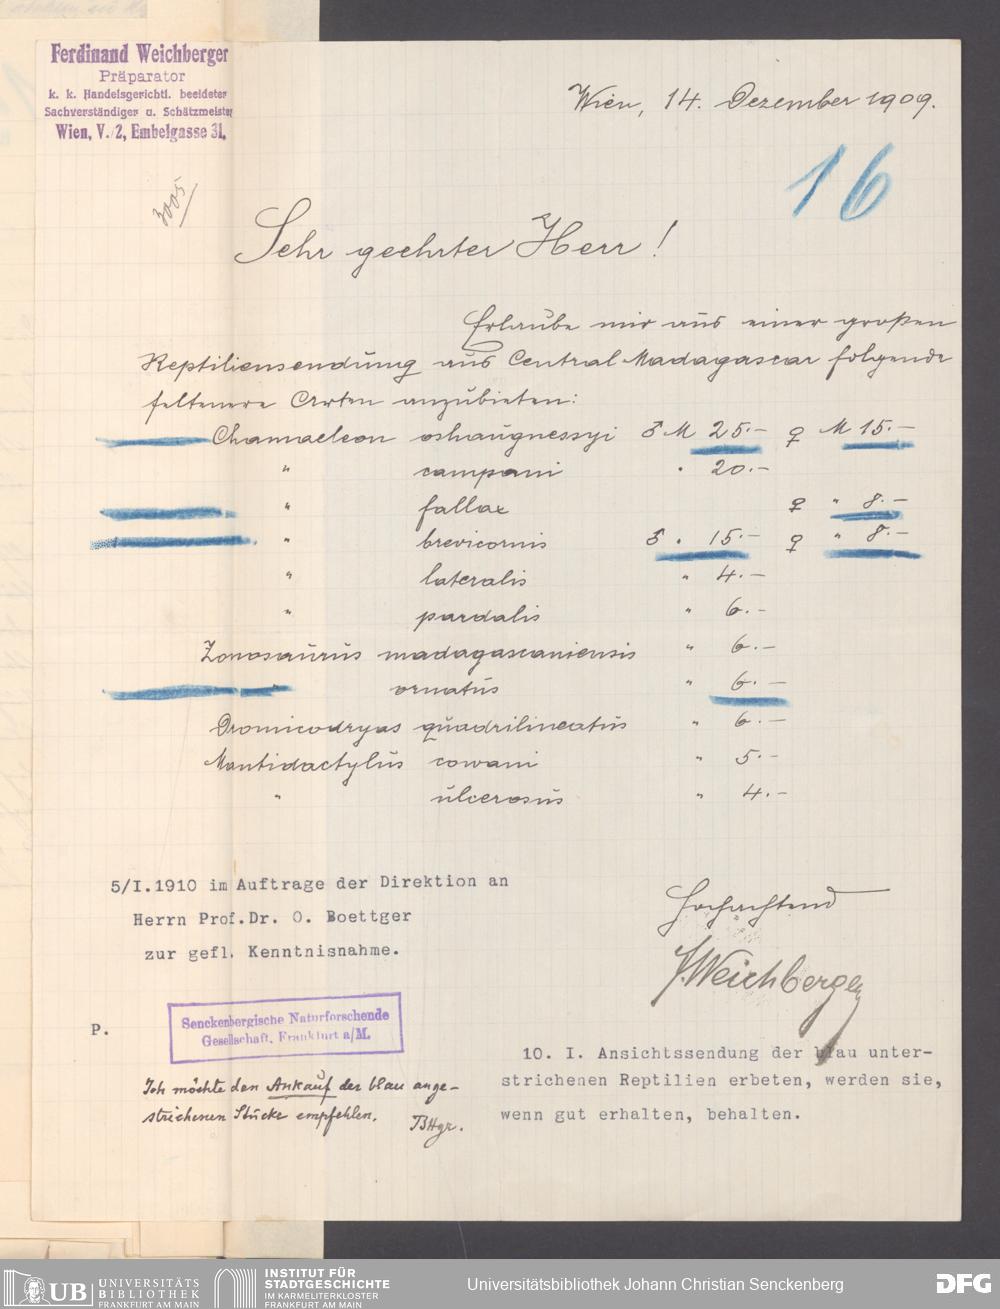 Ferdinand Weichberger
Präparator
k. k. Handelsgerichtl. beeideter
Sachverständiger u. Schätzmeister
Wien, V./2, Embelgasse 31.
Wien, 14. Dezember 1909.
16
3005
Sehr geehrter Herr!
Erlaube mir aus einer großen
Reptiliensendung aus Central Madagascar folgende
seltenere Arten anzubieten:
Chamaeleon oshaugnessyi ♂ M 25.— ♀ M 15.—
" campani " 20.—
" fallax ♀ " 8.—
" brevicornis ♂ " 15.— ♀ " 8.—
" lateralis " 4.—
" pardalis " 6.—
Zonosaurus madagascaniensis " 6.—
" ornatus " 6.—
Dromicodryas quadrilineatus " 6.—
Mantidactylus cowani " 5.—
" ulcerosus " 4.—
Hochachtend
F. Weichberger
5/I.1910 im Auftrage der Direktion an
Herrn Prof.Dr. O. Boettger
zur gefl. Kenntnisnahme.
P.
Senckenbergische Naturforschende
Gesellschaft, Frankfurt a/M.
Ich möchte den Ankauf der blau ange-
strichenen Stücke empfehlen.
Bttgr.
10. I. Ansichtssendung der blau unter-
strichenen Reptilien erbeten, werden sie,
wenn gut erhalten, behalten.
UB UNIVERSITÄTS
BIBLIOTHEK
FRANKFURT AM MAIN
INSTITUT FÜR
STADTGESCHICHTE
IM KARMELITERKLOSTER
FRANKFURT AM MAIN
Universitätsbibliothek Johann Christian Senckenberg
DFG